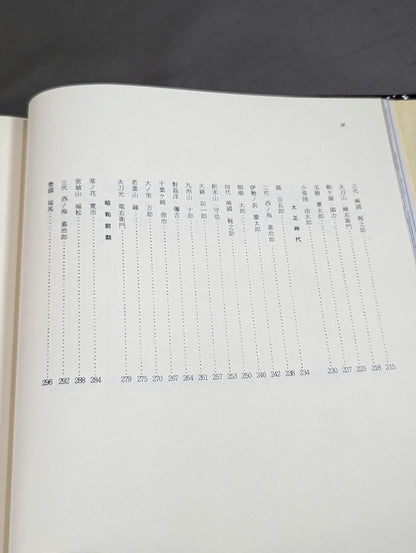 三代 両國 梶之助 215
太刀山 峰右衛門 218
駒ケ嶽 國力 223
玉椿 憲太郎 227
小常陸 由太郎 230
大正時代
鳳 谷五郎 234
二代 西ノ海 嘉治郎 238
伊勢ノ濱 慶太郎 242
朝潮 太郎 246
四代 両國 梶之助 250
栃木山 守也 253
大錦 卯一郎 257
九州山 十郎 261
對馬洋 彌吉 264
千葉ケ崎 俊治 267
大ノ里 万助 270
若葉山 鐘 275
太刀光 電右衛門 279
昭和前期
常ノ花 寛市 284
宮城山 福松 288
三代 西ノ海 嘉治郎 292
豊國 福馬 296